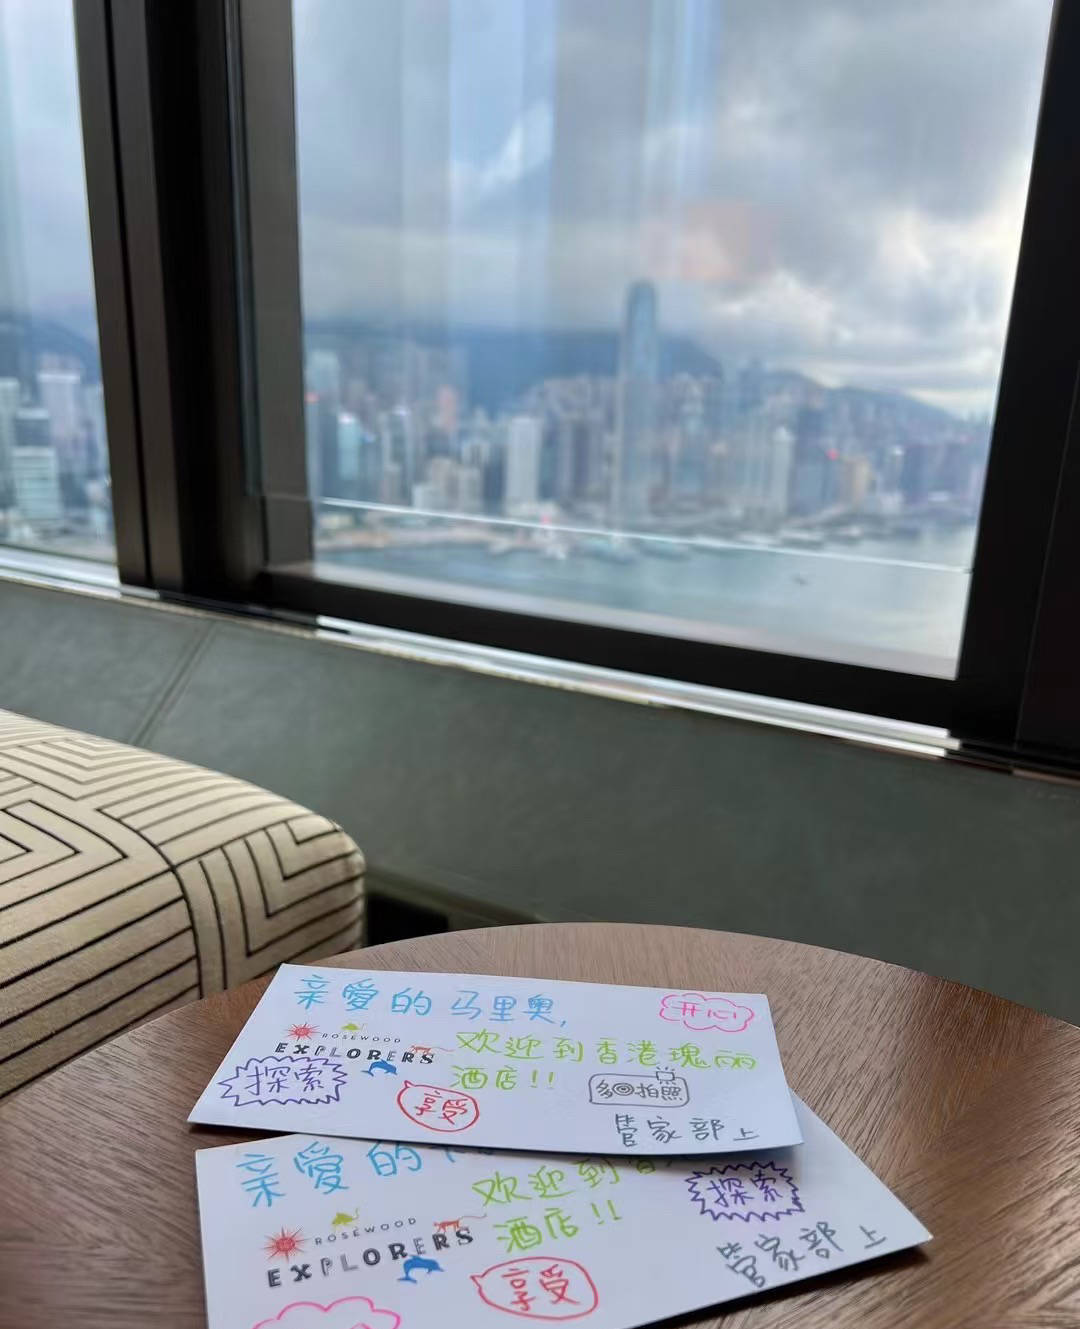 亲爱的 马里奥,
开心
ROSEWOOD
EXPLORERS
欢迎到香港瑰丽
酒店!!
探索
享受
多拍照
管家部上
亲爱的
欢迎到香
酒店!!
探索
ROSEWOOD
EXPLORERS
享受
管家部上